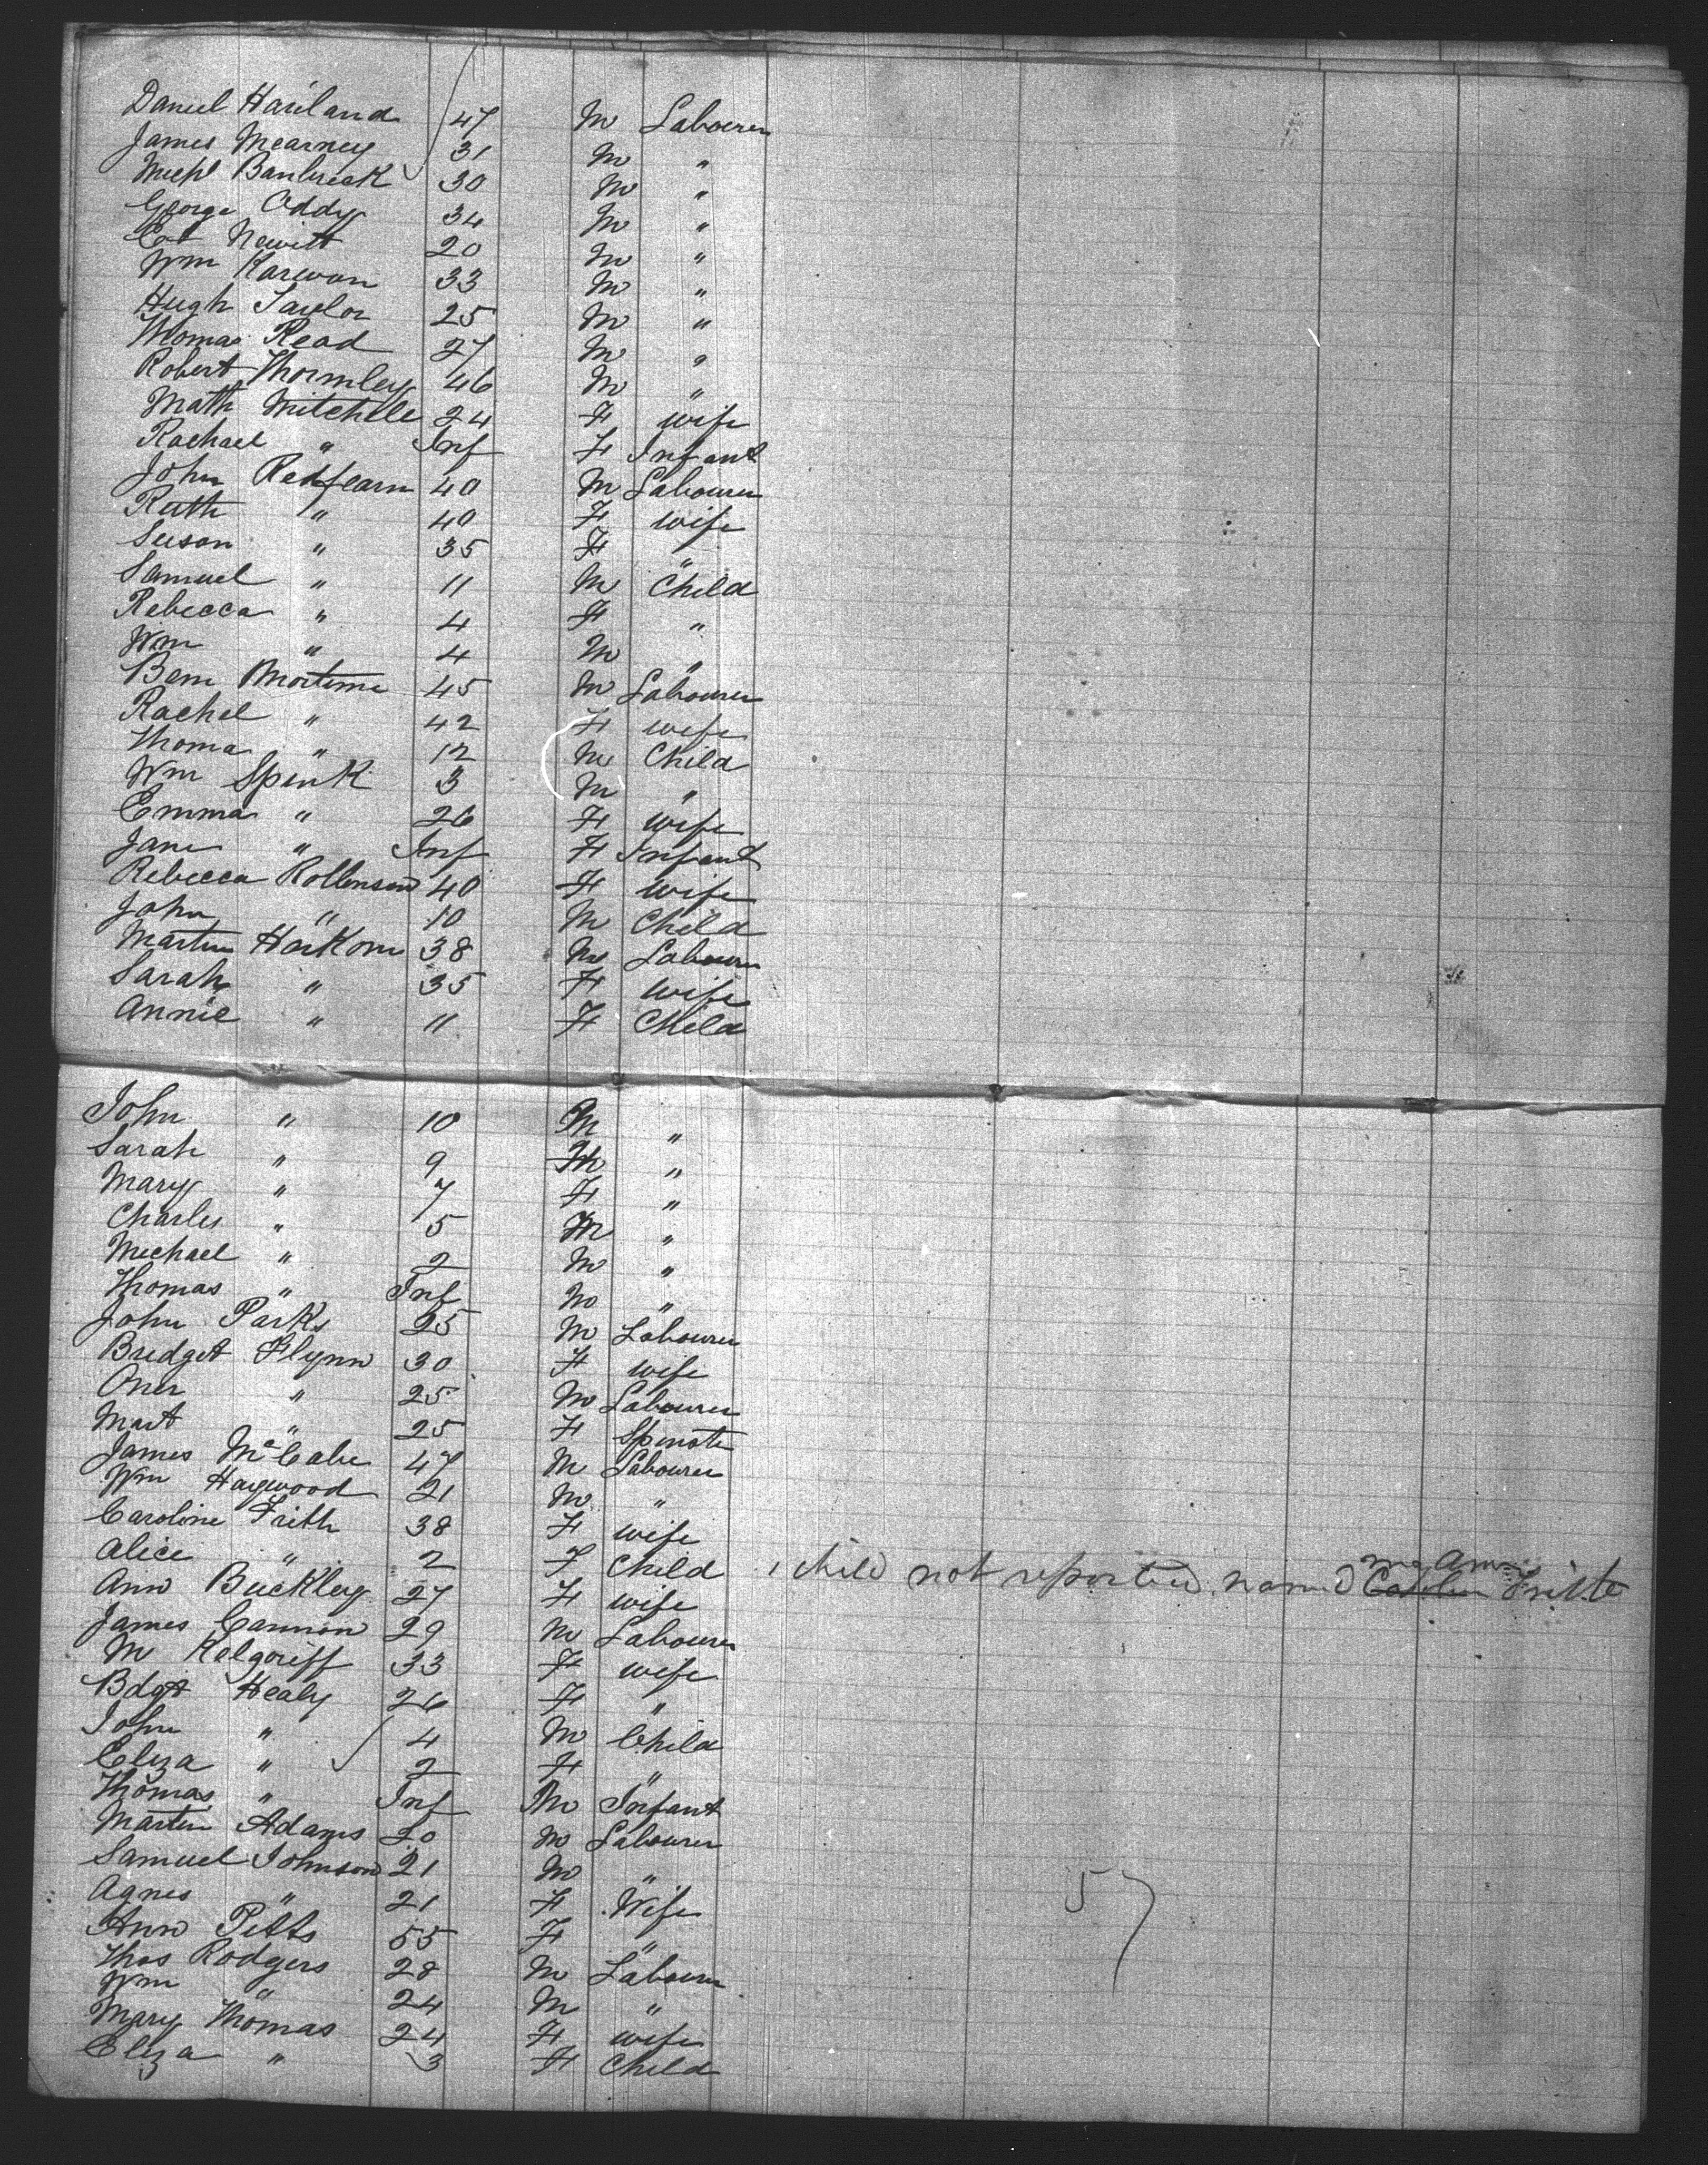 Daniel Haviland 47 M Labourer
James Mearney 31 M "
Michl Banbrick 30 M "
George Oddy 34 M "
Cat Newitt 20 M "
Wm Karwan 33 M "
Hugh Taylor 25 M "
Thomas Read 27 M "
Robert Thornley 46 M "
Math Mitchele 24 F wife
Rachael " Inf F Infant
John Redfearn 40 M Labourer
Ruth " 40 F wife
Suson " 35 F "
Samuel " 11 M Child
Rebecca " 4 F "
Wm " 4 M "
Benn Mortime 45 M Labourer
Rachel " 42 F wife
Thoma " 12 M Child
Wm Spink 3 M "
Emma " 26 F wife
Jane " Inf F Infant
Rebecca Rollinson 40 F wife
John " 10 M Child
Martin Harkom 38 M Labourer
Sarah " 35 F wife
Annie " 11 F Child
John " 10 M "
Sarah " 9 "
Mary " 7 F "
Charles " 5 M "
Michael " 2 M "
Thomas " Inf M "
John Parks 25 M Labourer
Bridget Flynn 30 F wife
Oner " 25 M Labourer
Mart " 25 F Spinster
James McCabe 47 M Labourer
Wm Haywood 21 M "
Caroline Frith 38 F wife
Alice " 2 F Child 1 child not reported named Caroline Frith
Ann Buckley 27 F wife
James Cannon 29 M Labourer
M Kelgariff 33 F wife
Bdgt Healy 26 F "
John " 4 M Child
Eliza " 2 F "
Thomas " Inf M Infant
Martin Adams 20 M Labourer
Samuel Johnson 21 M "
Agnes " 21 F Wife
Ann Pitts 55 F "
57
Thos Rodgers 28 M Labourer
Wm " 24 M "
Mary Thomas 24 F wife
Eliza " 3 F Child